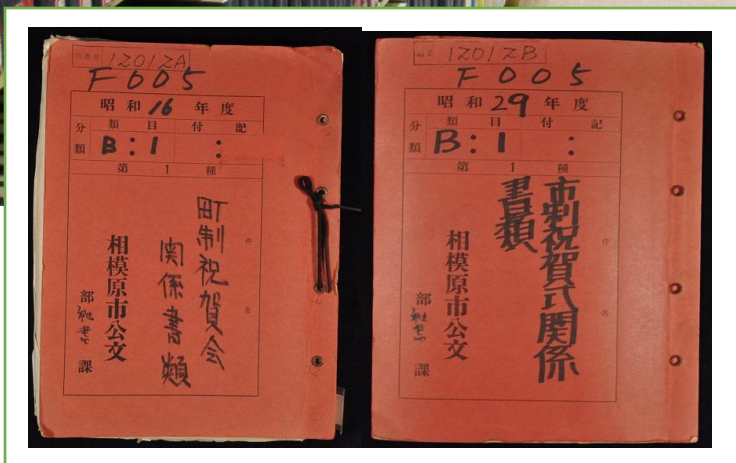 1201ZA
F005
昭和16年度
分類
類 目 付 記
B:1 :
第 1 種
件名
町制祝賀会
関係書類
相模原市公文
部 秘書 課
1201ZB
F005
昭和29年度
分類
類 目 付 記
B:1 :
第 1 種
件名
市制祝賀式関係
書類
相模原市公文
部 秘書 課